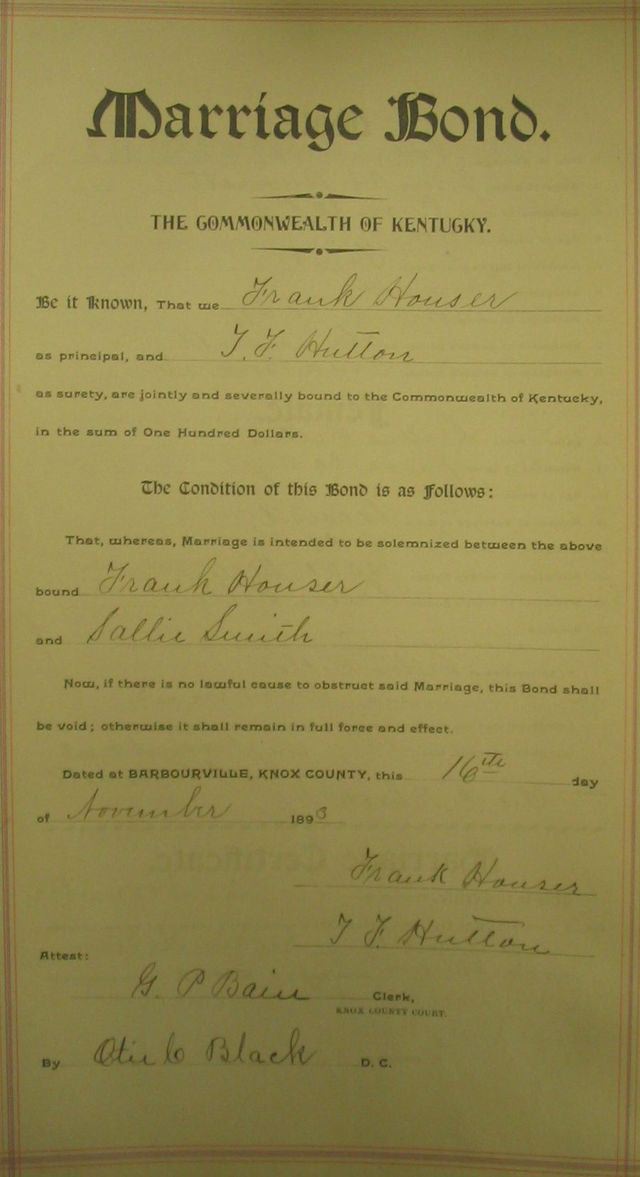 Marriage Bond.
THE COMMONWEALTH OF KENTUCKY.
Be it Known, That we Frank Houser
as principal, and T. F. Hutton
as surety, are jointly and severally bound to the Commonwealth of Kentucky,
in the sum of One Hundred Dollars.
The Condition of this Bond is as Follows:
That, whereas, Marriage is intended to be solemnized between the above
bound Frank Houser
and Sallie Smith
Now, if there is no lawful cause to obstruct said Marriage, this Bond shall
be void; otherwise it shall remain in full force and effect.
Dated at BARBOURVILLE, KNOX COUNTY, this 16th day
of November 1893
Frank Houser
T F. Hutton
Attest:
G. P Bain Clerk,
KNOX COUNTY COURT.
By Black D. C.